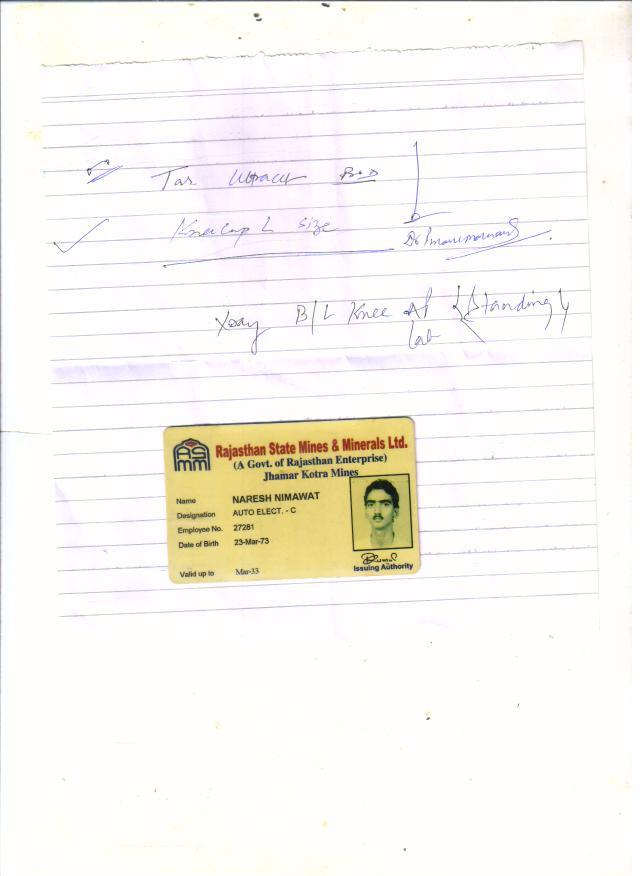 Tab
Kneecap L size
Dr
Xray B/L Knee AP {Standing}
Lat
Rajasthan State Mines & Minerals Ltd.
(A Govt. of Rajasthan Enterprise)
Jhamar Kotra Mines
Name NARESH NIMAWAT
Designation AUTO ELECT. - C
Employee No. 27281
Date of Birth 23-Mar-73
Valid up to Mar-33
Issuing Authority